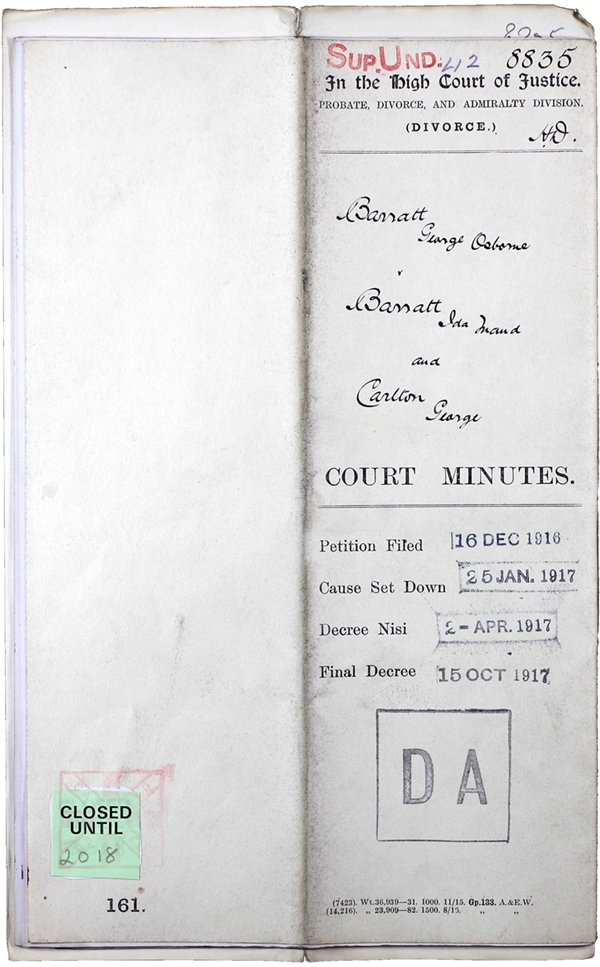 SUP.UND. 42 8835
In the High Court of Justice.
PROBATE, DIVORCE, AND ADMIRALTY DIVISION.
(DIVORCE.)
HD.
Barratt
George Osborne
v
Barratt
Ida Maud
and
Carlton
George
COURT MINUTES.
Petition Filed 16 DEC 1916
Cause Set Down 25 JAN. 1917
Decree Nisi 2 - APR. 1917
Final Decree 15 OCT 1917
D A
CLOSED
UNTIL
2018
161.
(7423) Wt.36,939—31. 1000. 11/15. Gp.133. A.&E.W.
(14,216). „ 23,909—82. 1500. 8/15. „ „